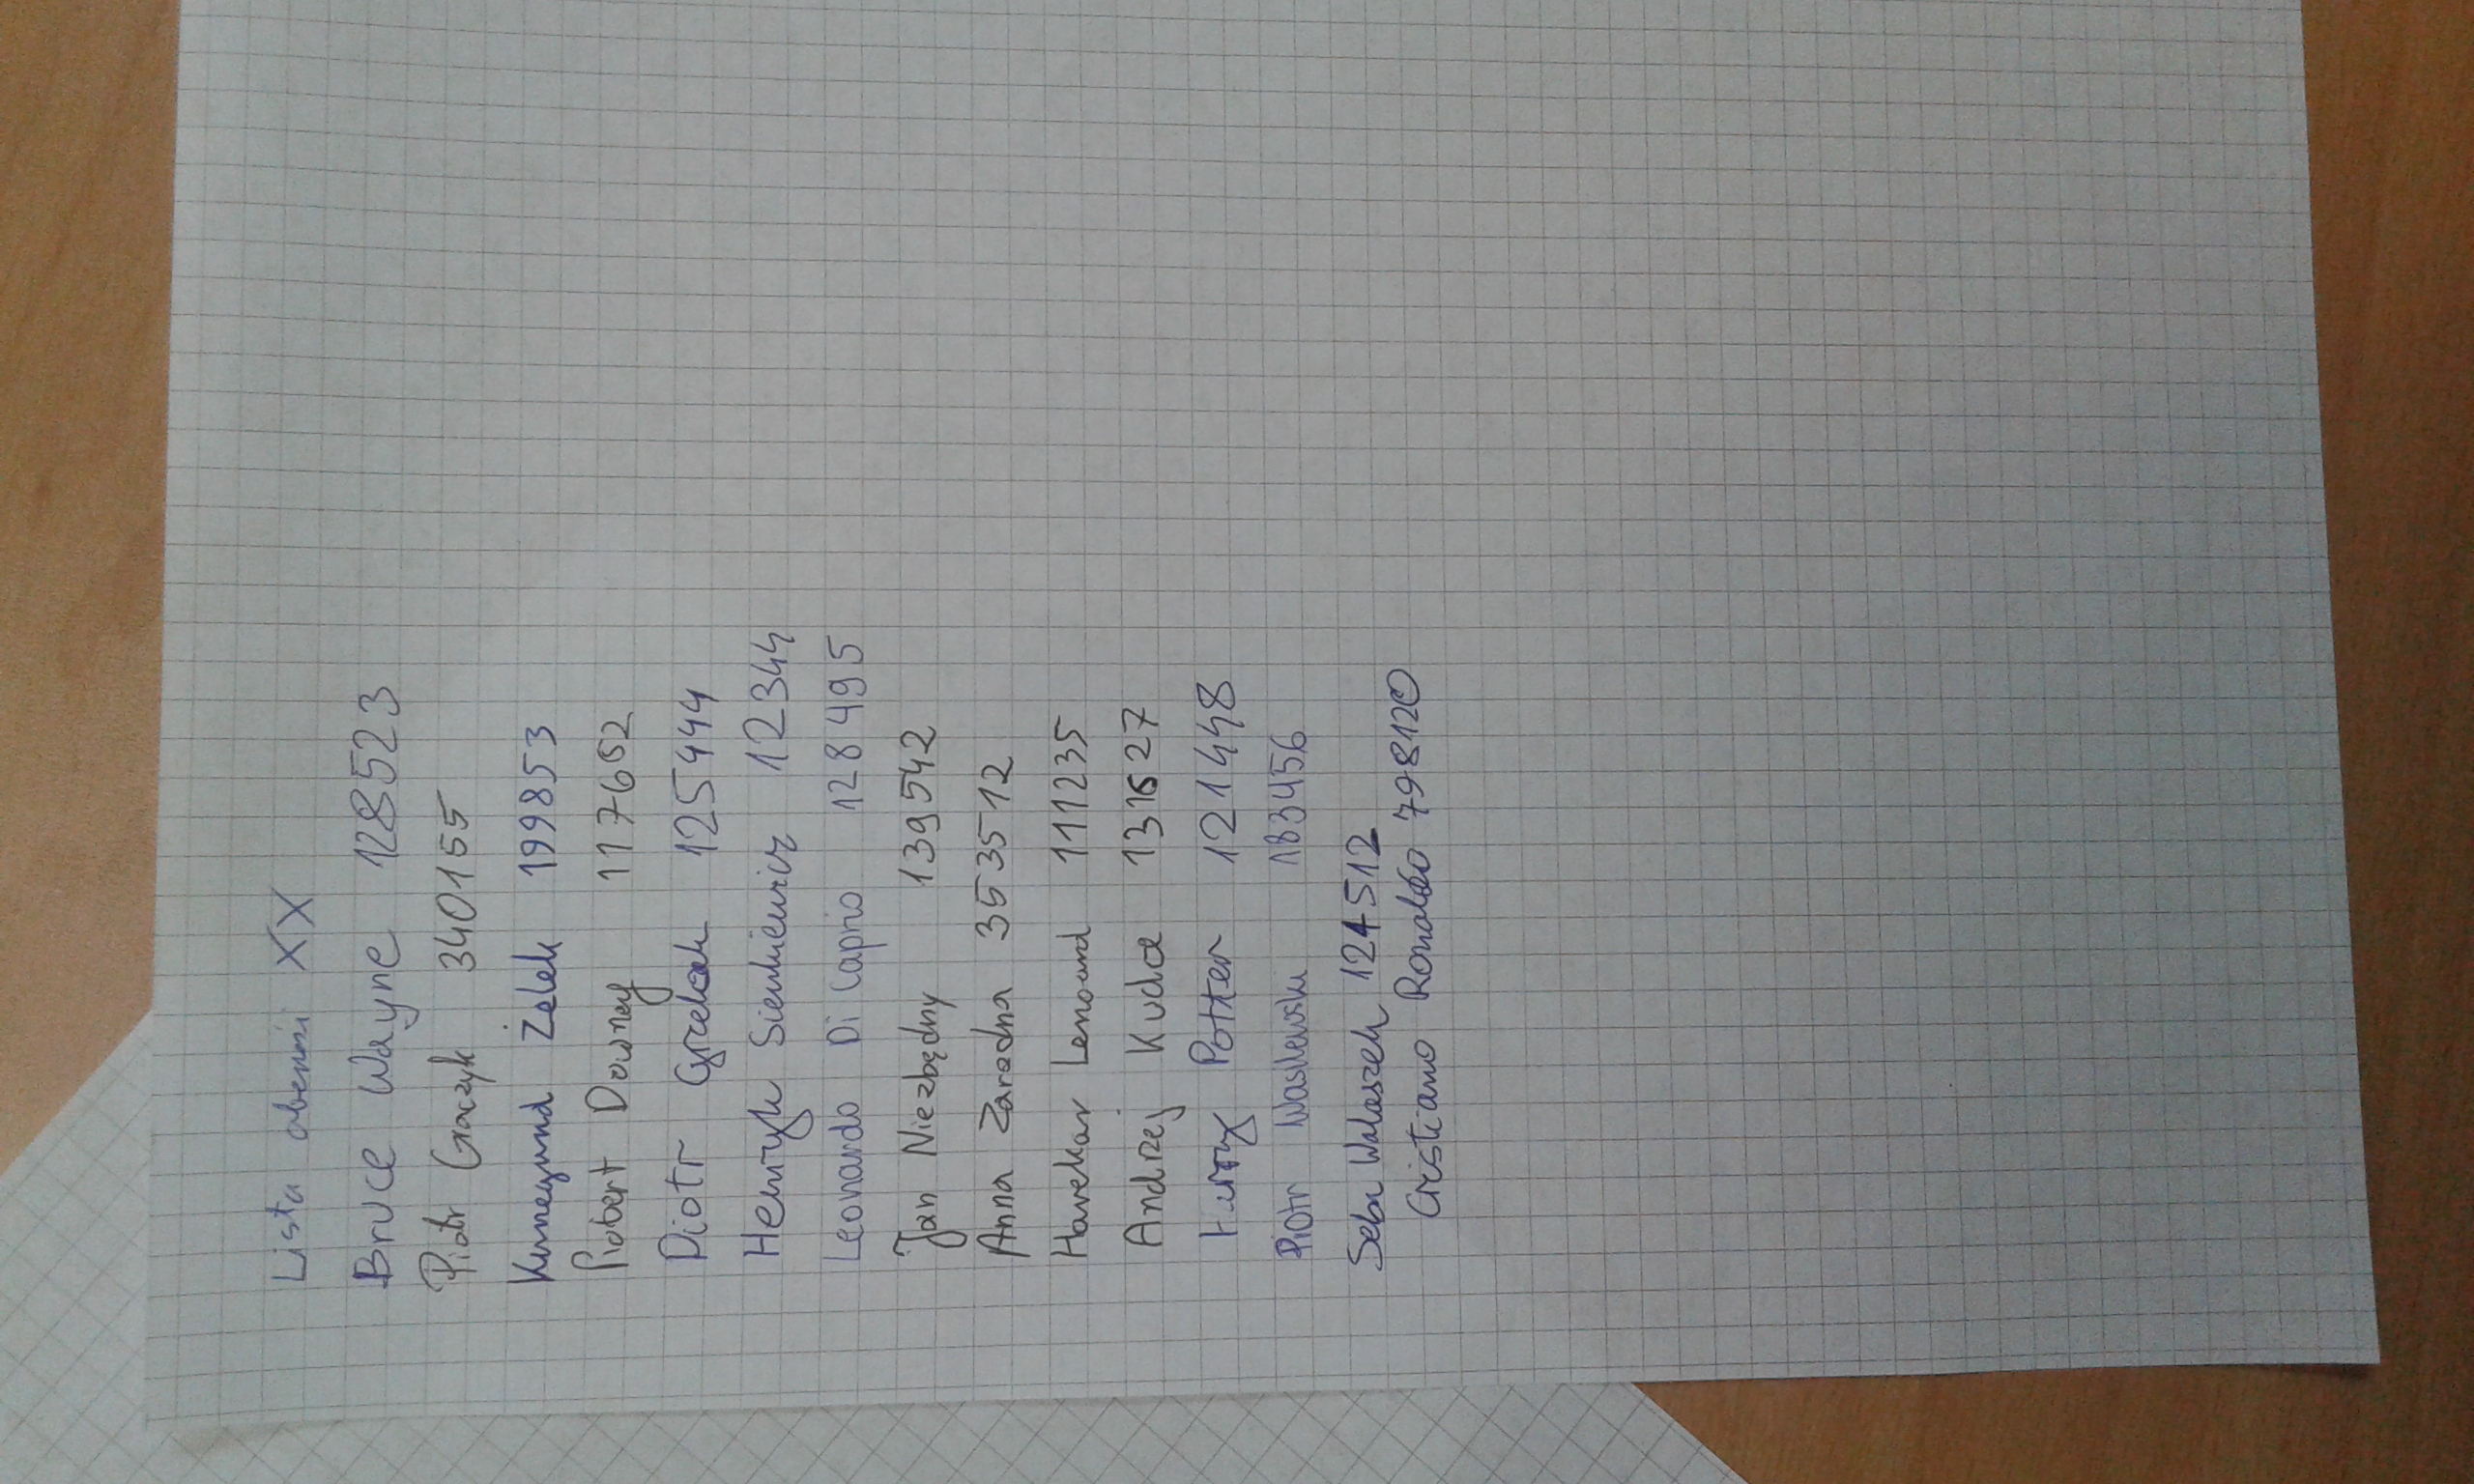 Lista obecności XX
Bruce Wayne 128523
Piotr Graczyk 340155
Kunegund Żelek 199853
Robert Downey 117652
Piotr Grzelak 125444
Henryk Sienkiewicz 12344
Leonardo Di Caprio 128495
Jan Niezbędny 139542
Anna Zaradna 353512
Harekar Lenoard 111235
Andrzej 131627
Harry Potter 121448
Piotr Wasilewski 183456
Seba Walaszek 124512
Cristiano Ronaldo 798120